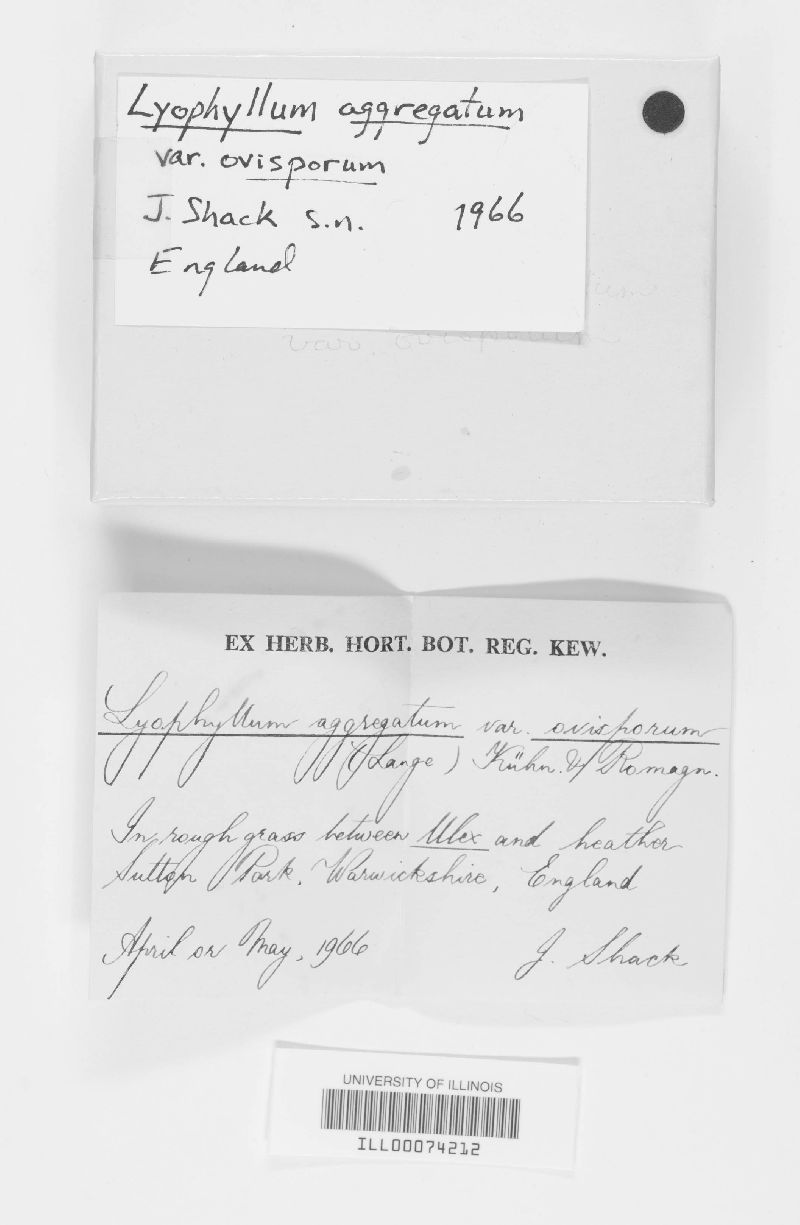 Lyophyllum aggregatum
var. ovisporum
J. Shack s.n. 1966
England
var. ovisporum
EX HERB. HORT. BOT. REG. KEW.
Lyophyllum aggregatum var. ovisporum
(Lange) Kühn. & Romagn.
In rough grass between Ulex and heather
Sutton Park, Warwickshire, England
April or May, 1966 J. Shack
UNIVERSITY OF ILLINOIS
ILL00074212